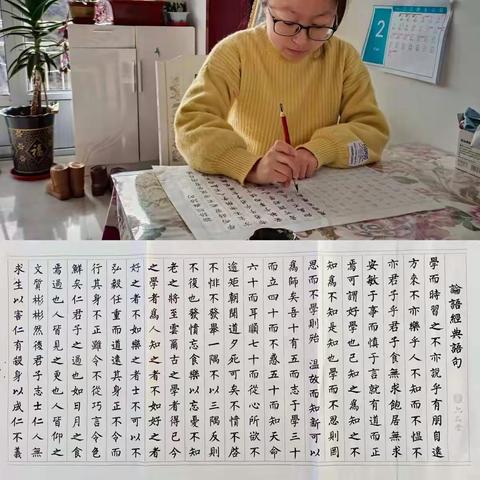 2
福
論語經典語句
學而時習之不亦說乎有朋自遠
方來不亦樂乎人不知而不慍不
亦君子乎君子食無求飽居無求
安敏于事而慎于言就有道而正
焉可謂好學也已知之為知之不
知為不知是知也學而不思則罔
思而不學則殆 溫故而知新可以
爲師矣吾十有五而志于學三十
而立四十而不惑五十而知天命
六十而耳順七十而從心所欲不
逾矩朝聞道夕死可矣不憤不啓
不悱不發舉一隅不以三隅反則
不復也發憤忘食樂以忘憂不知
老之將至雲爾古之學者為己今
之學者爲人知之者不如好之者
好之者不如樂之者士不可以不
弘毅任重而道遠其身正不令而
行其身不正雖令不從巧言令色
鮮矣仁君子之過也如日月之食
焉過也人皆見之更也人皆仰之
文質彬彬然後君子志士仁人無
求生以害仁有殺身以成仁不義